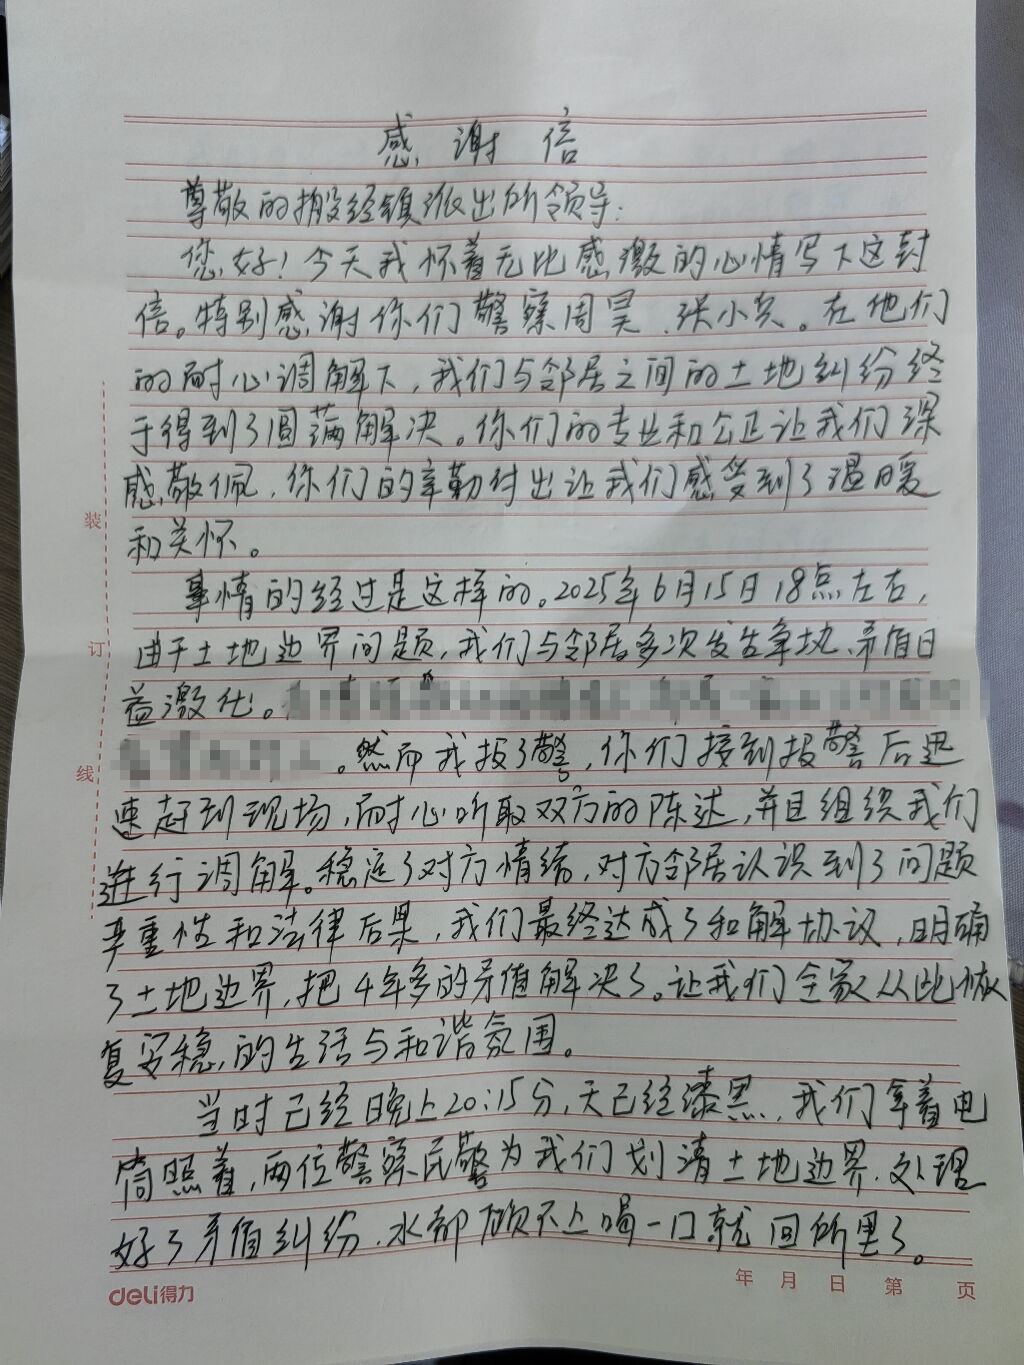 感谢信
尊敬的般经镇派出所领导:
您好!今天我怀着无比感激的心情写下这封
信。特别感谢你们警察周昊、张小宾。在他们
的耐心调解下,我们与邻居之间的土地纠纷终
于得到了圆满解决。你们的专业和公正让我们深
感敬佩,你们的辛勤付出让我们感受到了温暖
和关怀。
事情的经过是这样的。2025年6月15日18点左右,
由于土地边界问题,我们与邻居多次发生争执、矛盾日
益激化。
。然而我报了警,你们接到报警后迅
速赶到现场,耐心听取双方的陈述,并且组织我们
进行调解。稳定了对方情绪,对方邻居认识到了问题
严重性和法律后果,我们最终达成了和解协议,明确
了土地边界,把4年多的矛值解决了。让我们全家从此恢
复安稳的生活与和谐氛围。
当时已经晚上20:15分,天已经漆黑,我们拿着电
筒照着,两位警察民警为我们划清土地边界.处理
好了矛值纠纷.水都顾不上喝一口就回所里了。
装
订
线
deli得力
年 月 日 第 页